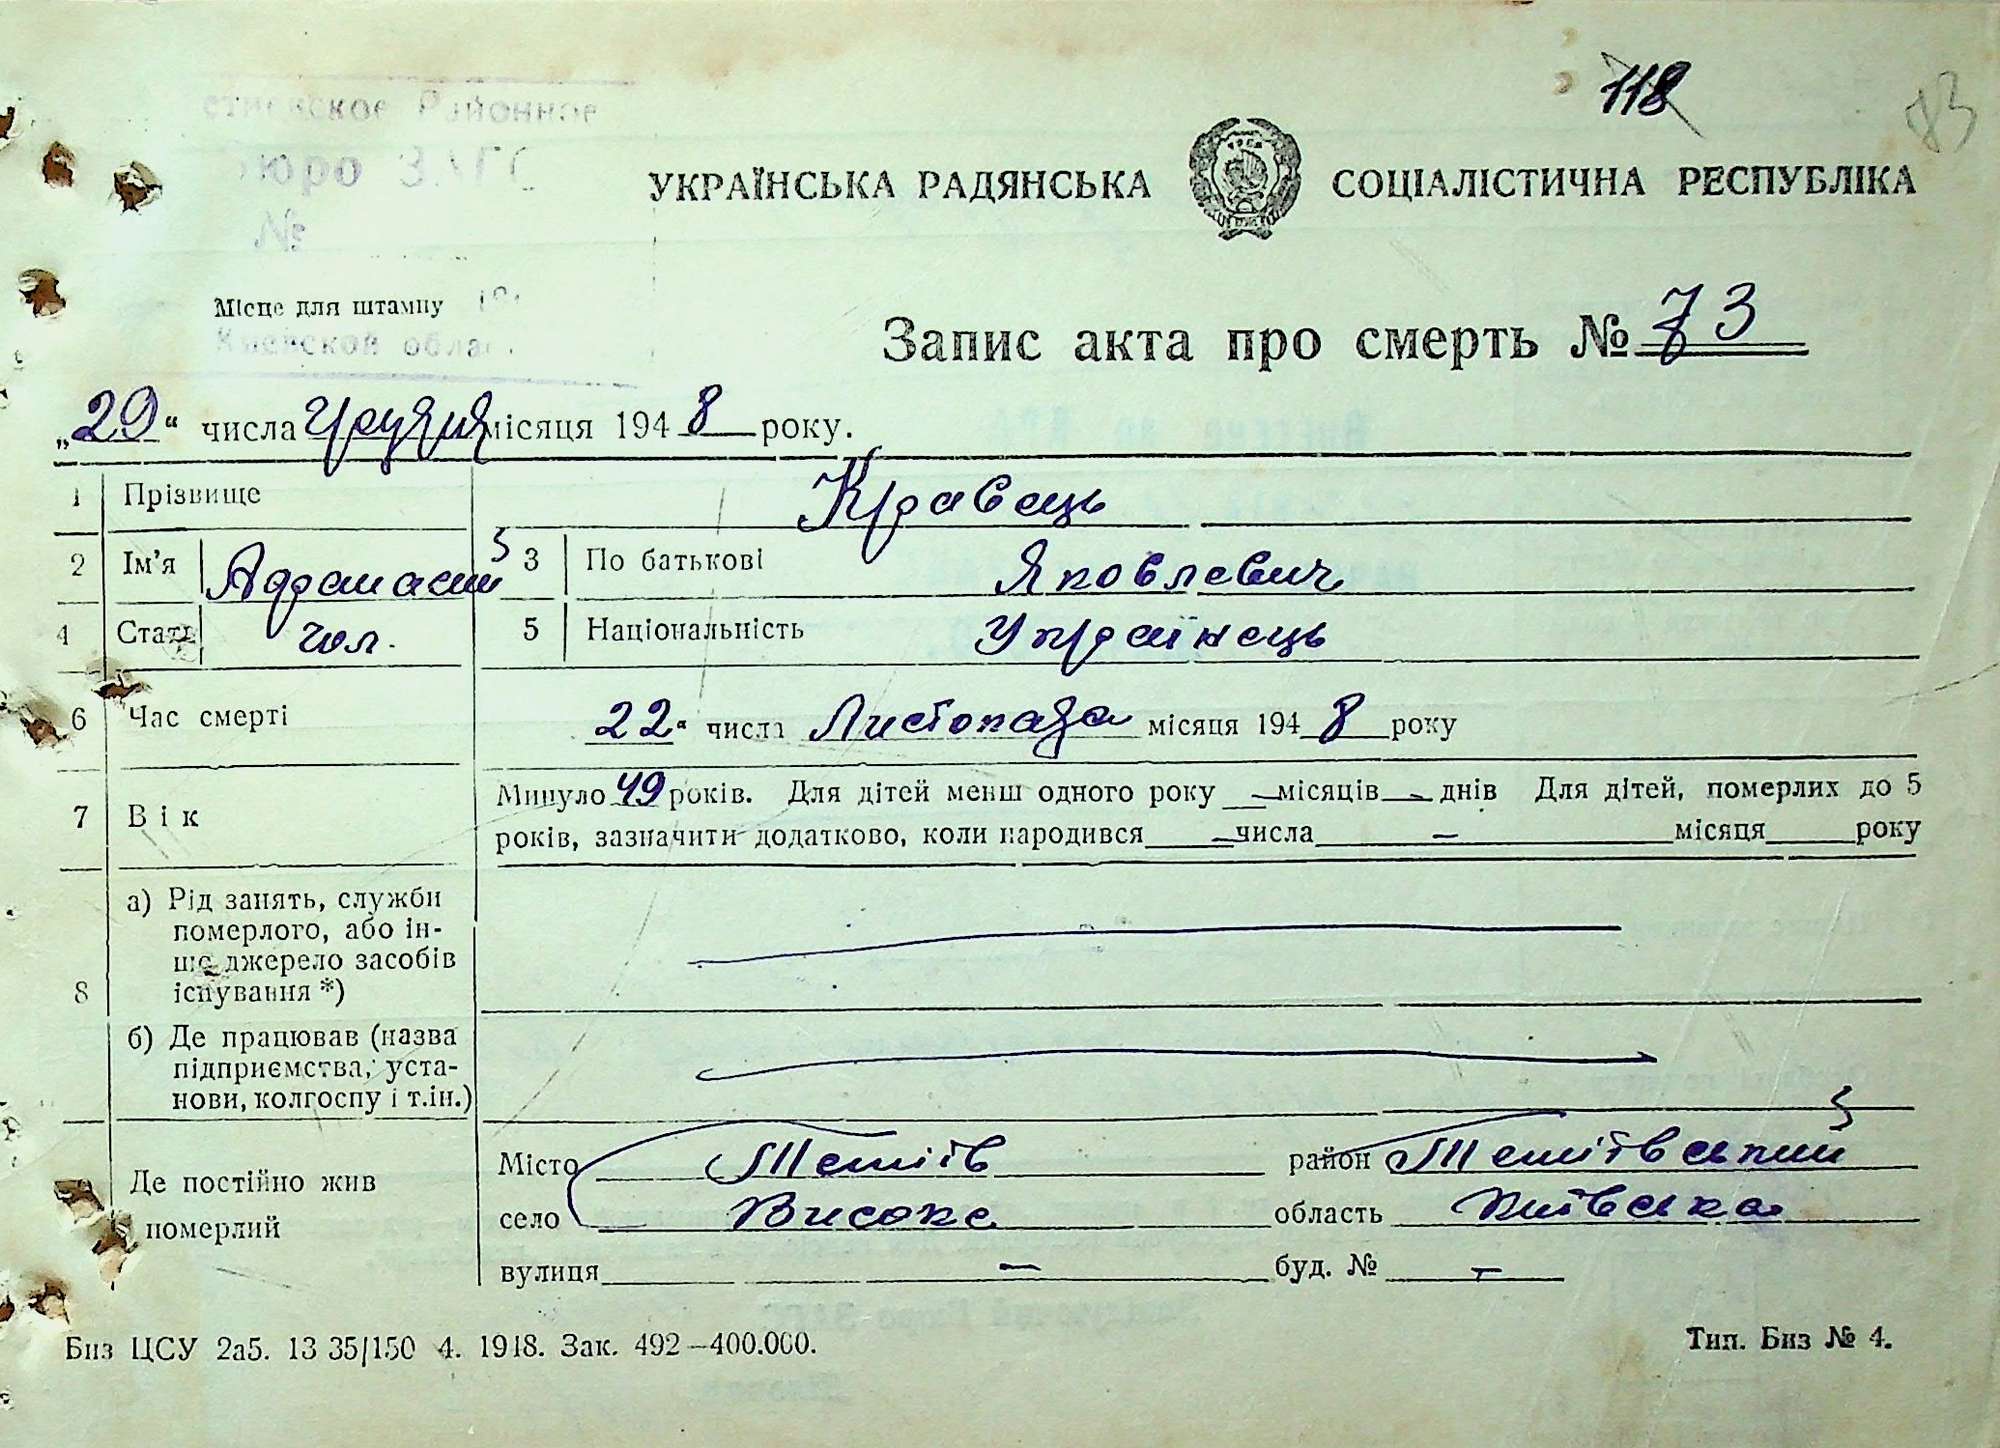 118
83
Районное
бюро ЗАГС
№
УКРАЇНСЬКА РАДЯНСЬКА СОЦІАЛІСТИЧНА РЕСПУБЛІКА
Місце для штампу
Киевской облас.
Запис акта про смерть № 73
„29“ числа Грудня місяця 1948 року.
1 Прізвище Кравець
2 Ім'я Афанасий 3 По батькові Яковлевич
4 Стать чол. 5 Національність Українець
6 Час смерті 22“ числа Листопада місяця 1948 року
7 Вік Минуло 49 років. Для дітей менш одного року — місяців — днів Для дітей, померлих до 5
років, зазначити додатково, коли народився — числа — місяця року
8 а) Рід занять, служби
померлого, або ін-
ше джерело засобів
існування *)
б) Де працював (назва
підприємства, уста-
нови, колгоспу і т.ін.)
Де постійно жив
померлий
Місто Тетіїв район Тетіївський
село Високе область Київська
вулиця — буд. № —
Биз ЦСУ 2а5. 13 35/150 4. 1948. Зак. 492—400.000. Тип. Биз № 4.